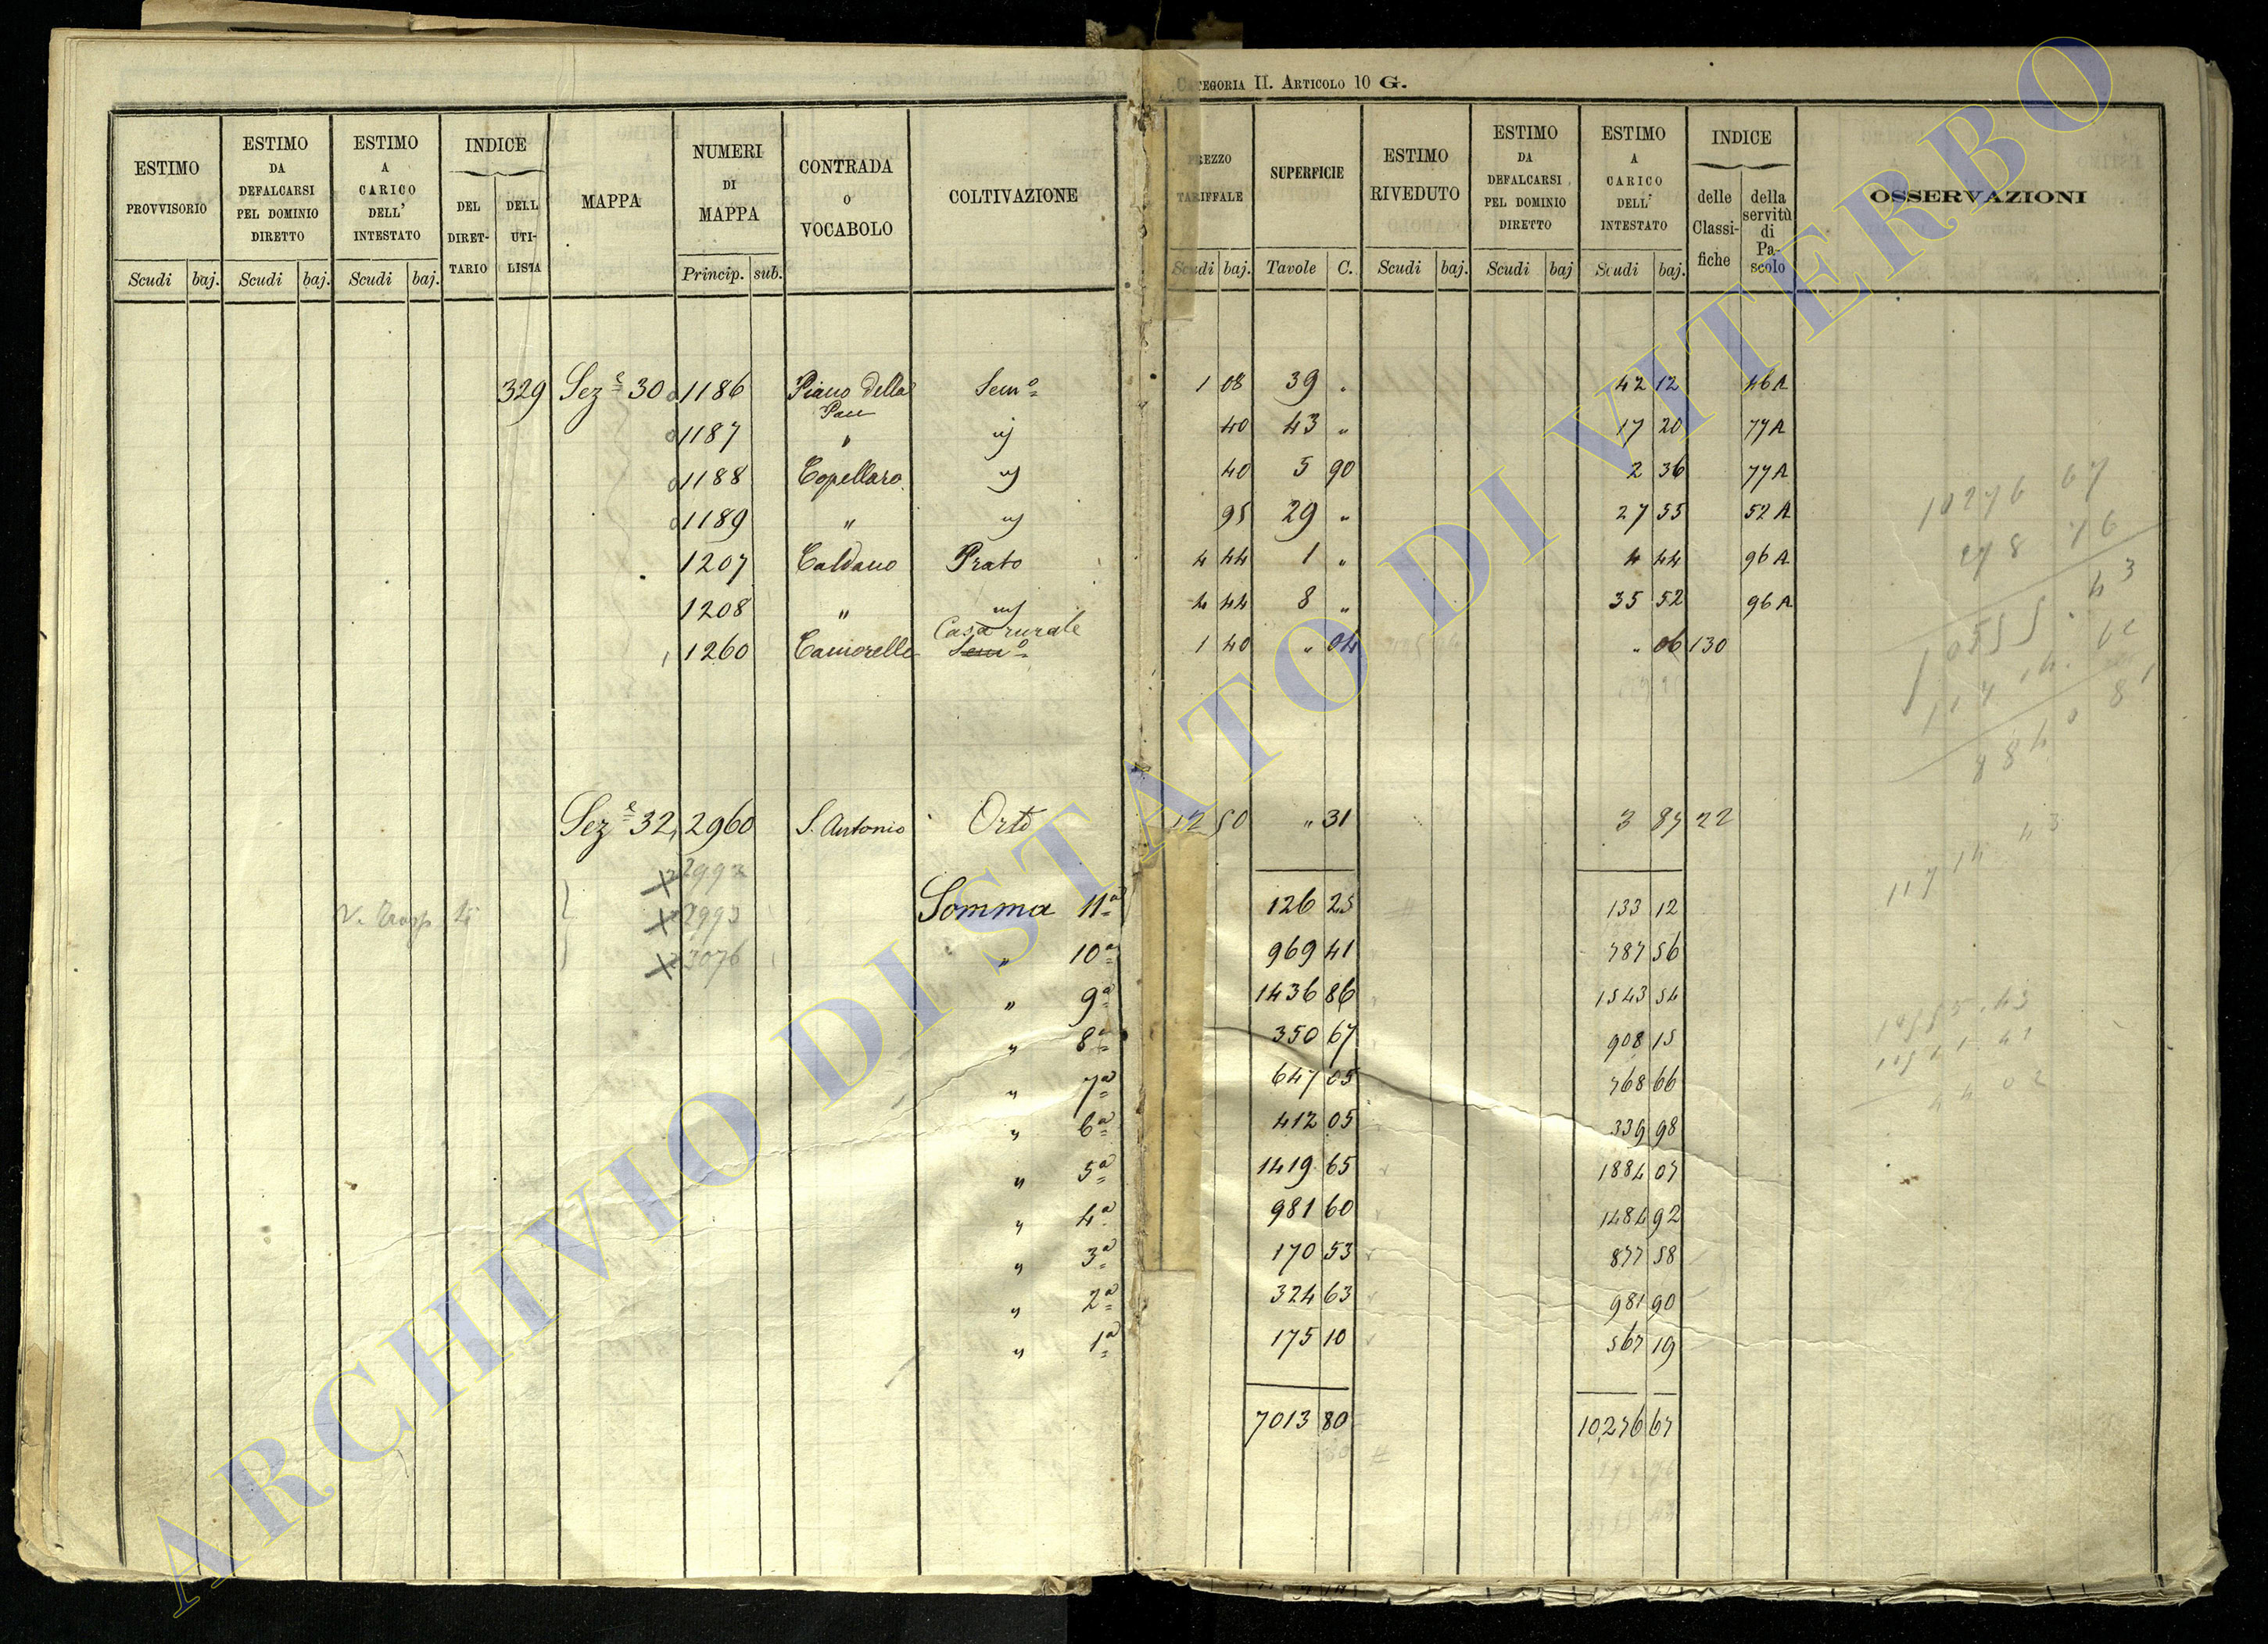 CATEGORIA II. ARTICOLO 10 G.
ESTIMO PROVVISORIO
ESTIMO DA DEFALCARSI PEL DOMINIO DIRETTO
ESTIMO A CARICO DELL' INTESTATO
INDICE
DEL DIRET-TARIO
DELL UTI-LISTA
MAPPA
NUMERI DI MAPPA
CONTRADA O VOCABOLO
COLTIVAZIONE
Scudi baj. Scudi baj. Scudi baj. Princip. sub.
PREZZO TARIFFALE
SUPERFICIE
ESTIMO RIVEDUTO
ESTIMO DA DEFALCARSI PEL DOMINIO DIRETTO
ESTIMO A CARICO DELL' INTESTATO
INDICE
delle Classi-fiche
della servitù di Pa-scolo
OSSERVAZIONI
Scudi baj. Tavole C. Scudi baj. Scudi baj Scudi baj.
329 Sez.e 30 1186 Piano della Sem.o 1 08 39 " 42 12 46 A
Pace
1187 " " 40 43 " 17 20 77 A
1188 Copellaro " 40 5 90 2 36 77 A
1189 " " 95 29 " 27 55 52 A
1207 Caldano Prato 4 44 1 " 4 44 96 A
1208 " " 4 44 8 " 35 52 96 A
Casa rurale
1260 Camorelle Sem.o 1 40 " 04 " 06 130
Sez.e 32 2960 S. Antonio Orto 12 50 " 31 3 87 22
2992
2993
3076
Somma 11a 126 25 133 12
" 10a 969 41 787 56
" 9a 1436 86 1543 54
" 8a 350 67 908 15
" 7a 647 05 768 66
" 6a 412 05 339 98
" 5a 1419 65 1884 07
" 4a 981 60 1484 92
" 3a 170 53 877 58
" 2a 324 63 981 90
" 1a 175 10 567 19
7013 80 10,276 67
10276 67
278 76
ARCHIVIO DI STATO DI VITERBO